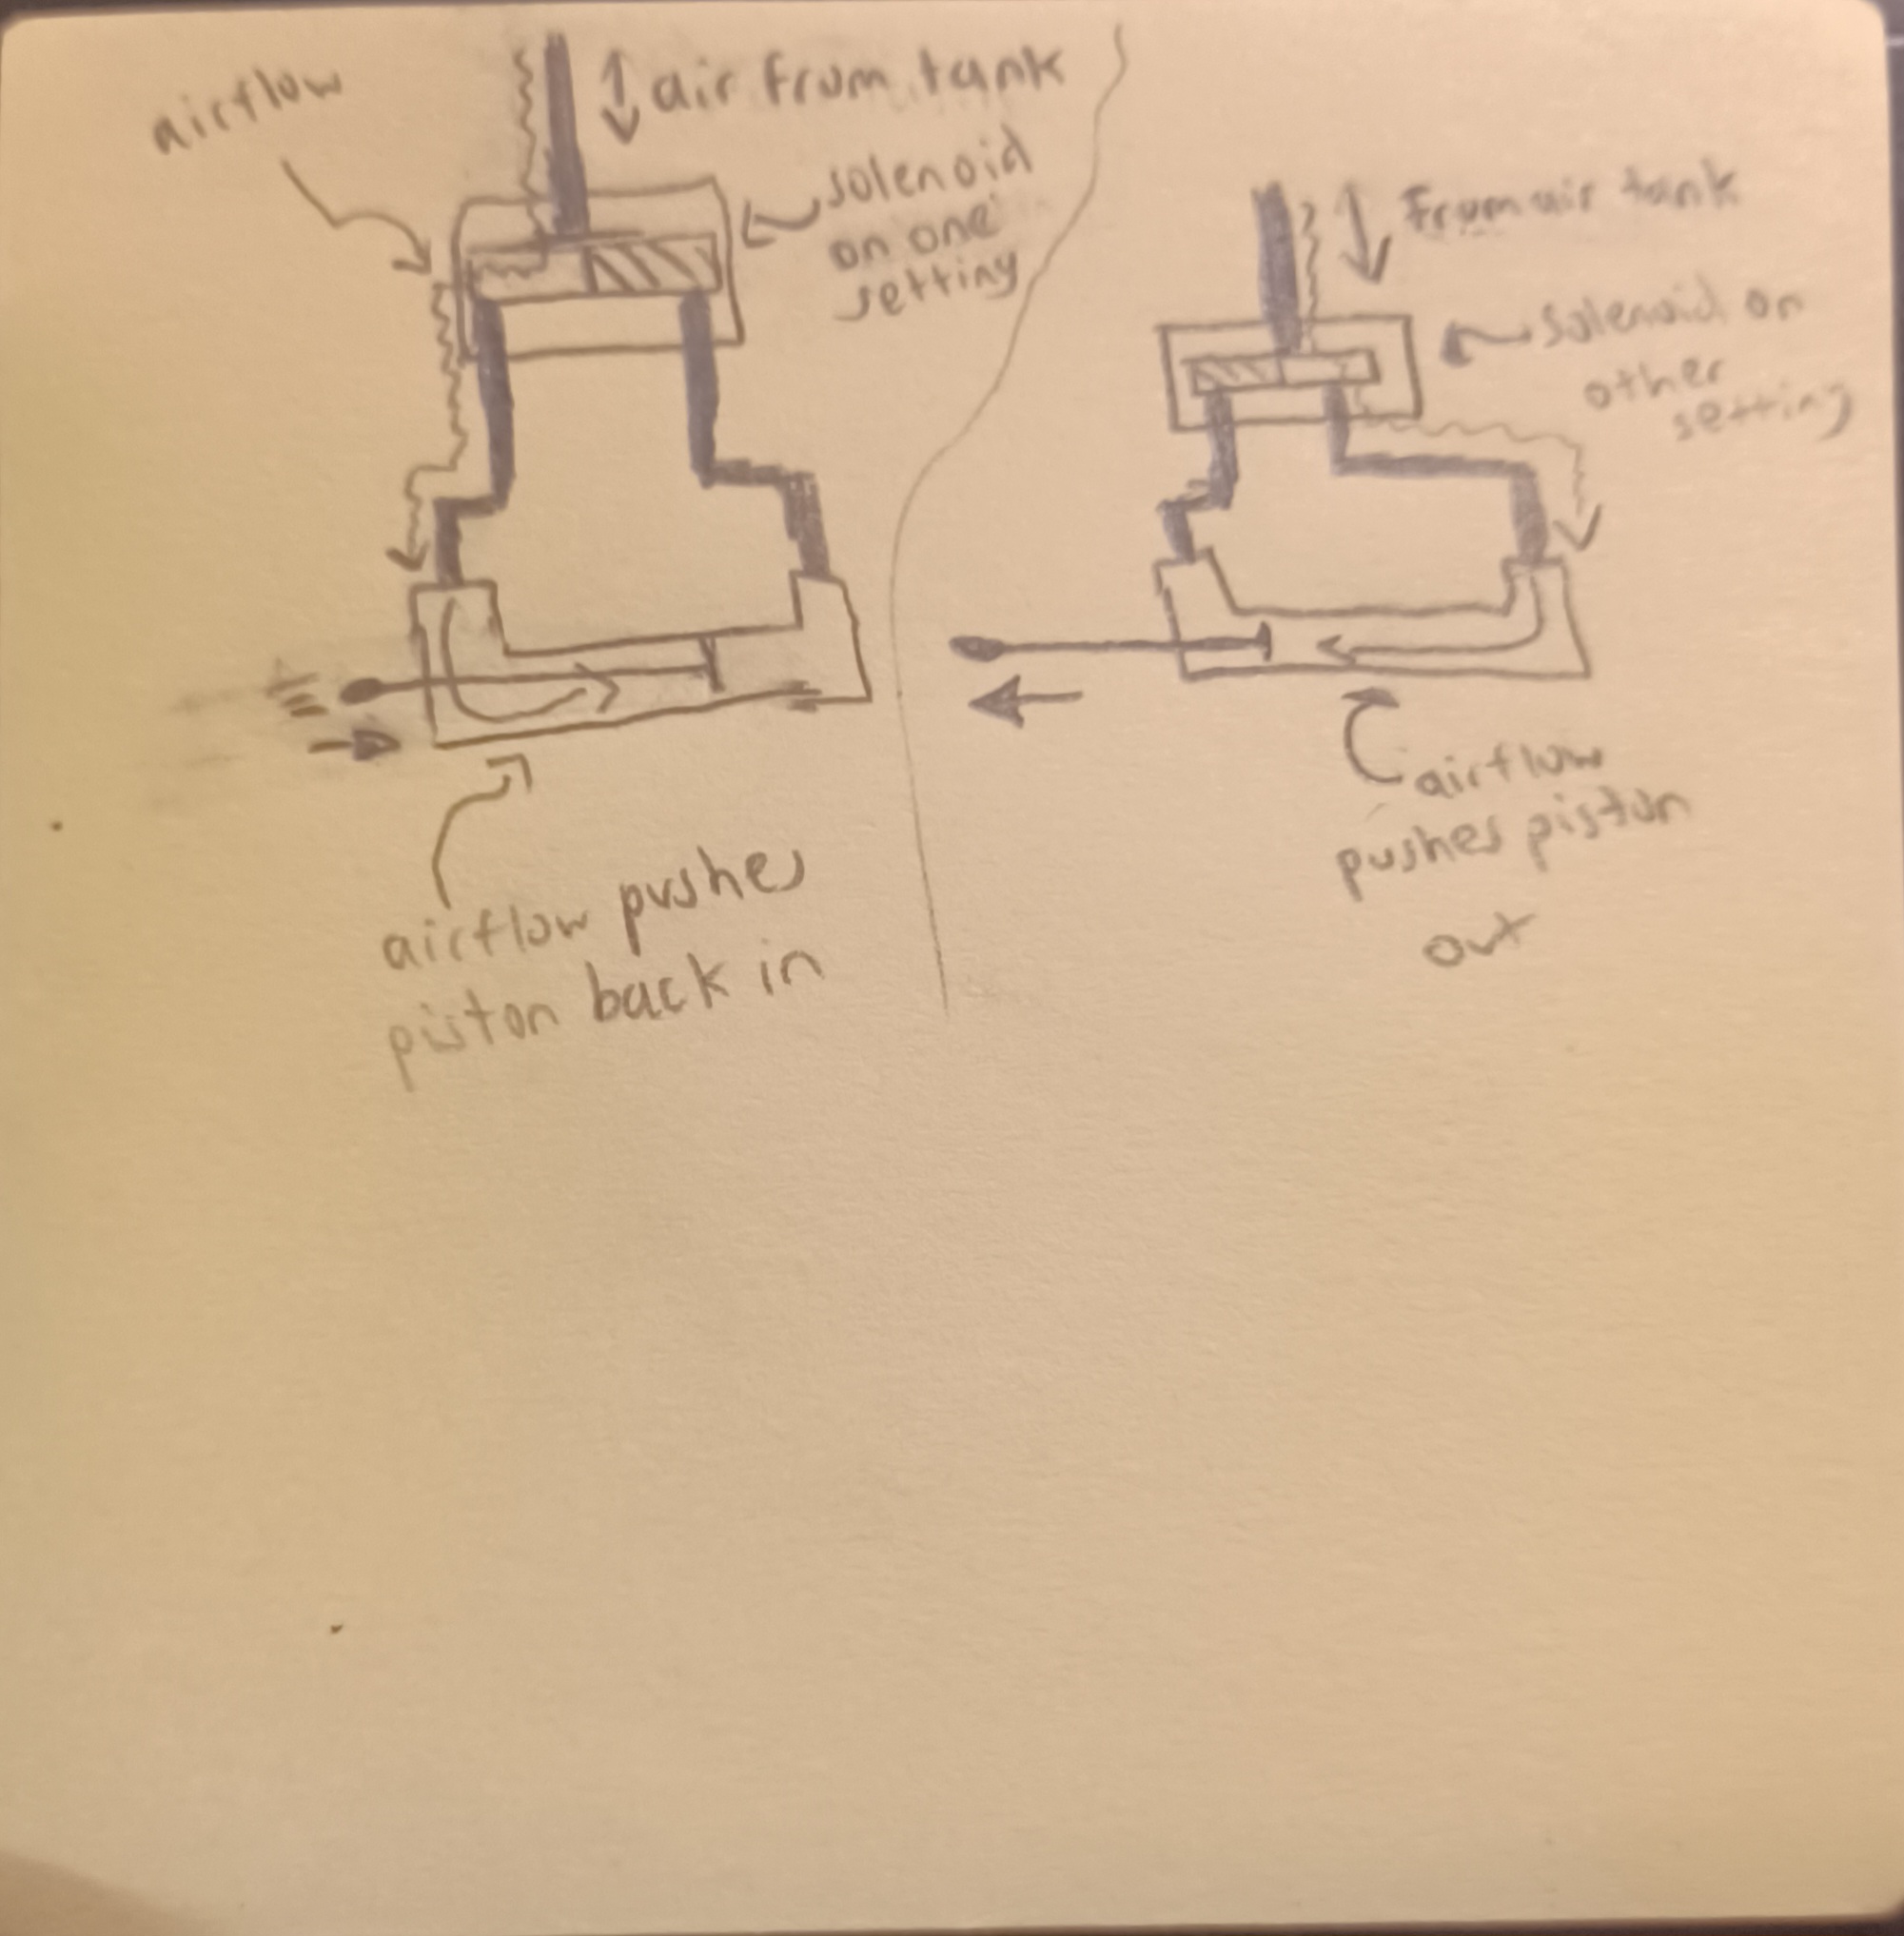 airflow
air from tank
solenoid
on one
setting
airflow pushes
piston back in
From air tank
Solenoid on
other
setting
airflow
pushes piston
out